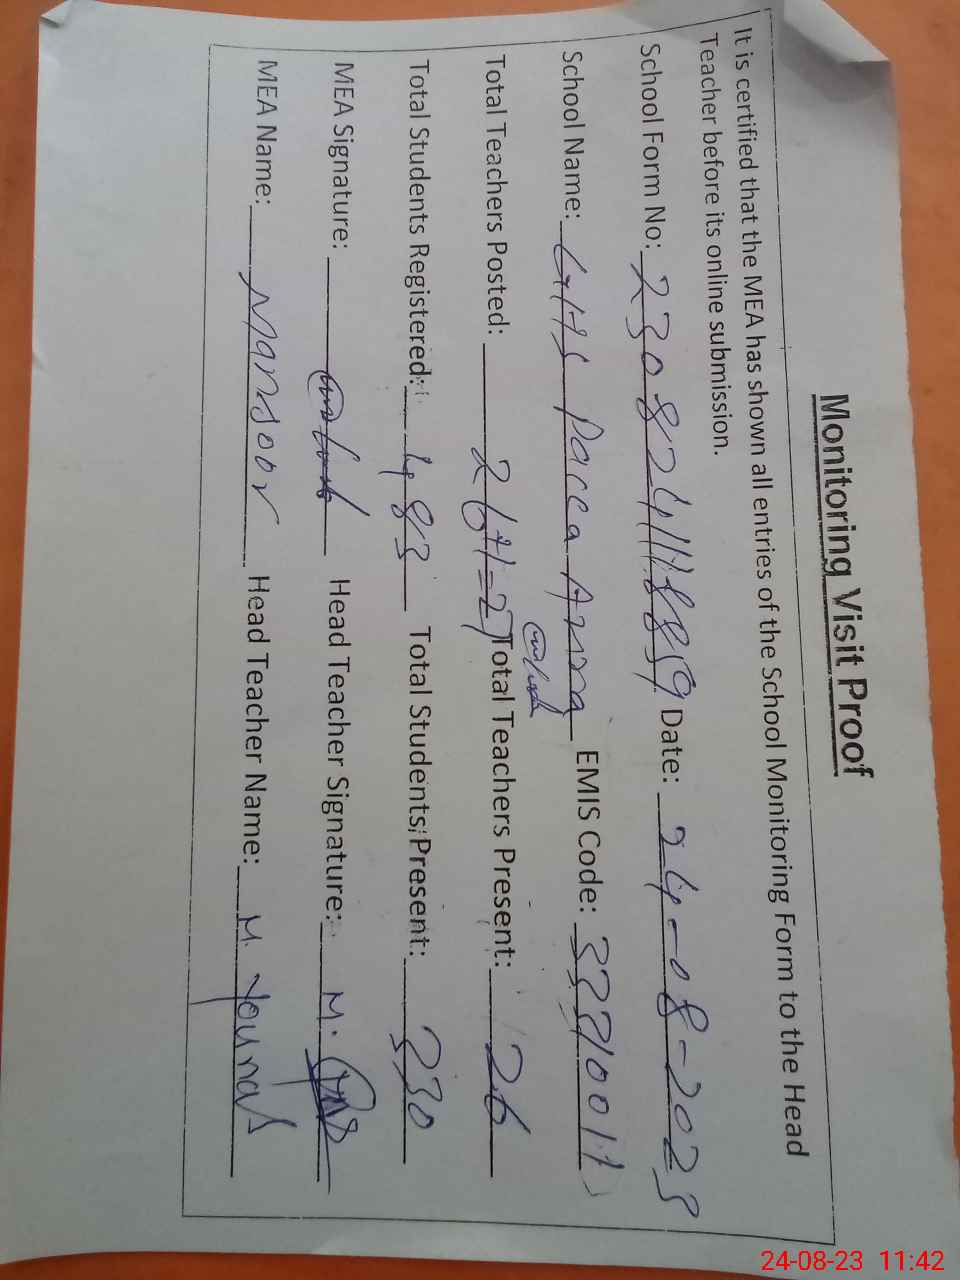 Monitoring Visit Proof
It is certified that the MEA has shown all entries of the School Monitoring Form to the Head
Teacher before its online submission.
School Form No: 230824111889 Date: 24-08-2023
School Name: GHS Pacca Anna EMIS Code:
Total Teachers Posted: 26+1=27 Total Teachers Present: 26
Total Students Registered: 483 Total Students Present: 330
MEA Signature: Head Teacher Signature: M.
MEA Name: Mansoor Head Teacher Name: M. Younas
24-08-23 11:42